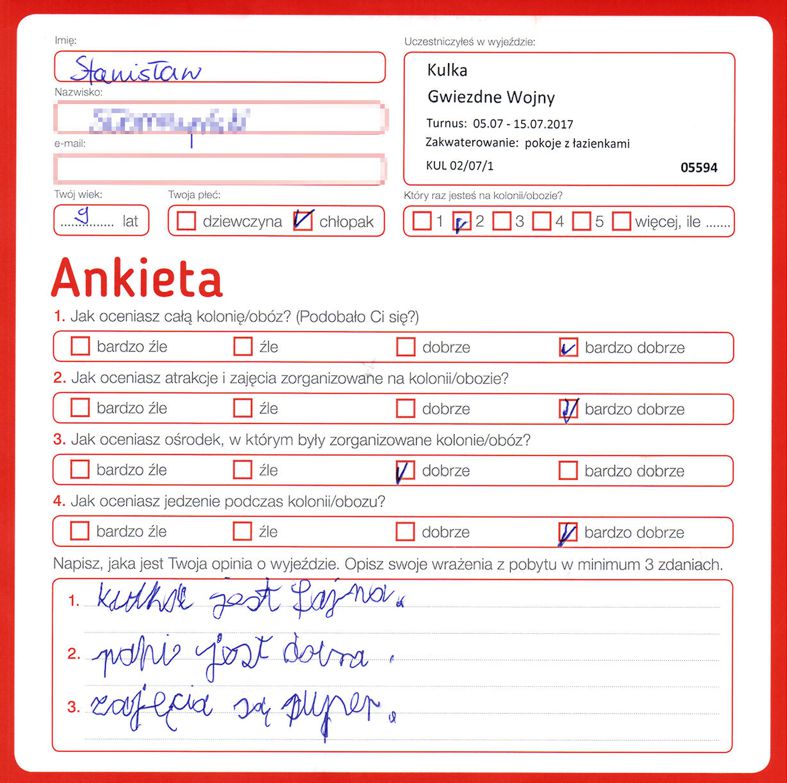 Imię:
Stanisław
Nazwisko:
e-mail:
Twój wiek:
9 lat
Twoja płeć:
dziewczyna chłopak
Uczestniczyłeś w wyjeździe:
Kulka
Gwiezdne Wojny
Turnus: 05.07 - 15.07.2017
Zakwaterowanie: pokoje z łazienkami
KUL 02/07/1 05594
Który raz jesteś na kolonii/obozie?
1 2 3 4 5 więcej, ile .......
Ankieta
1. Jak oceniasz całą kolonię/obóz? (Podobało Ci się?)
bardzo źle źle dobrze bardzo dobrze
2. Jak oceniasz atrakcje i zajęcia zorganizowane na kolonii/obozie?
bardzo źle źle dobrze bardzo dobrze
3. Jak oceniasz ośrodek, w którym były zorganizowane kolonie/obóz?
bardzo źle źle dobrze bardzo dobrze
4. Jak oceniasz jedzenie podczas kolonii/obozu?
bardzo źle źle dobrze bardzo dobrze
Napisz, jaka jest Twoja opinia o wyjeździe. Opisz swoje wrażenia z pobytu w minimum 3 zdaniach.
1. jest fajna.
2. jest dobra.
3. zajęcia są super.